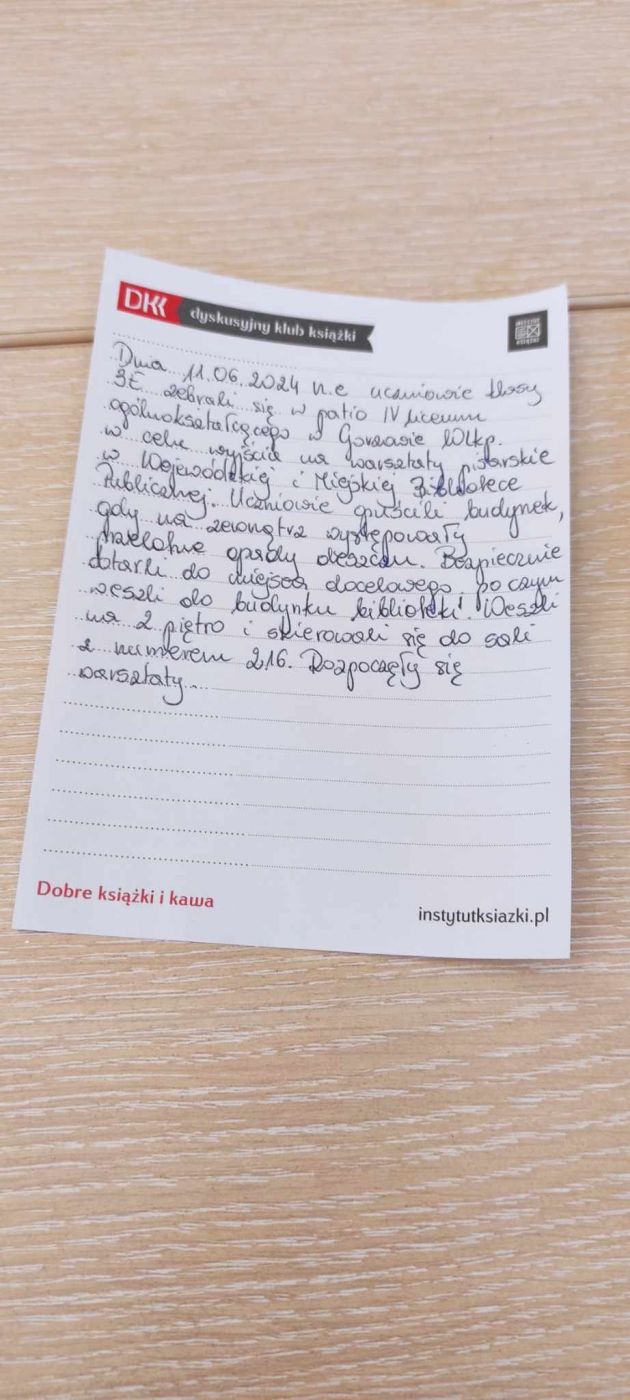 DKK dyskusyjny klub książki
INSTYTUT
KSIĄŻKI
Dnia 11.06.2024 n.e uczniowie klasy
3E zebrali się w patio IV liceum
ogólnokształcącego w Gorzowie Wlkp.
w celu wyjścia na warsztaty pisarskie
w Wojewódzkiej i Miejskiej Bibliotece
Publicznej. Uczniowie opuścili budynek,
gdy na zewnątrz występowały
przelotne opady deszczu. Bezpiecznie
dotarli do miejsca docelowego, po czym
weszli do budynku biblioteki. Weszli
na 2 piętro i skierowali się do sali
z numerem 216. Rozpoczęły się
warsztaty...
Dobre książki i kawa
instytutksiazki.pl